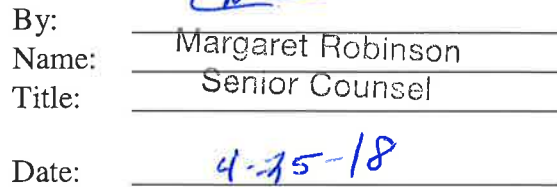 By:
Name: Margaret Robinson
Title: Senior Counsel
Date: 4-25-18